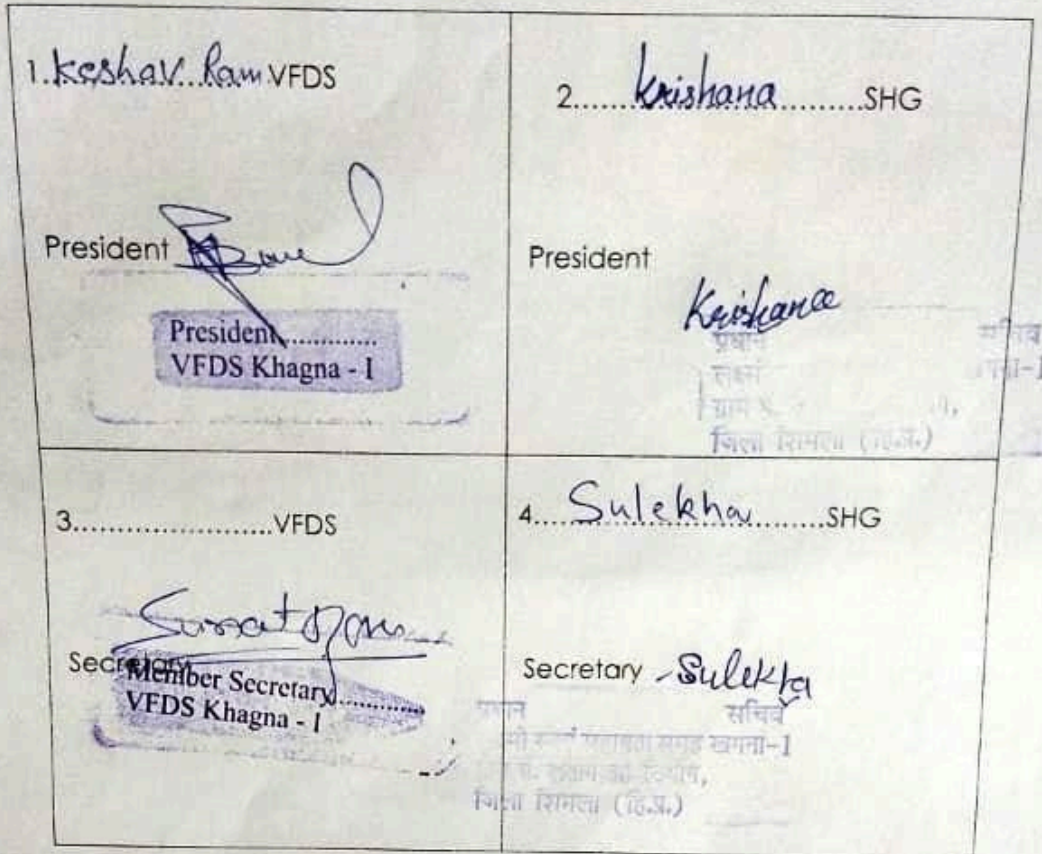 1.Keshav Ram VFDS
President
President.............
VFDS Khagna - I
2......Krishana..........SHG
President
Krishana
प्रधान
ग्राम
जिला शिमला (हि.प्र.)
3......................VFDS
Secretary
Member Secretary.............
VFDS Khagna - I
4....Sulekha.......SHG
Secretary Sulekha
प्रधान सचिव
खगना-I
जिला शिमला (हि.प्र.)